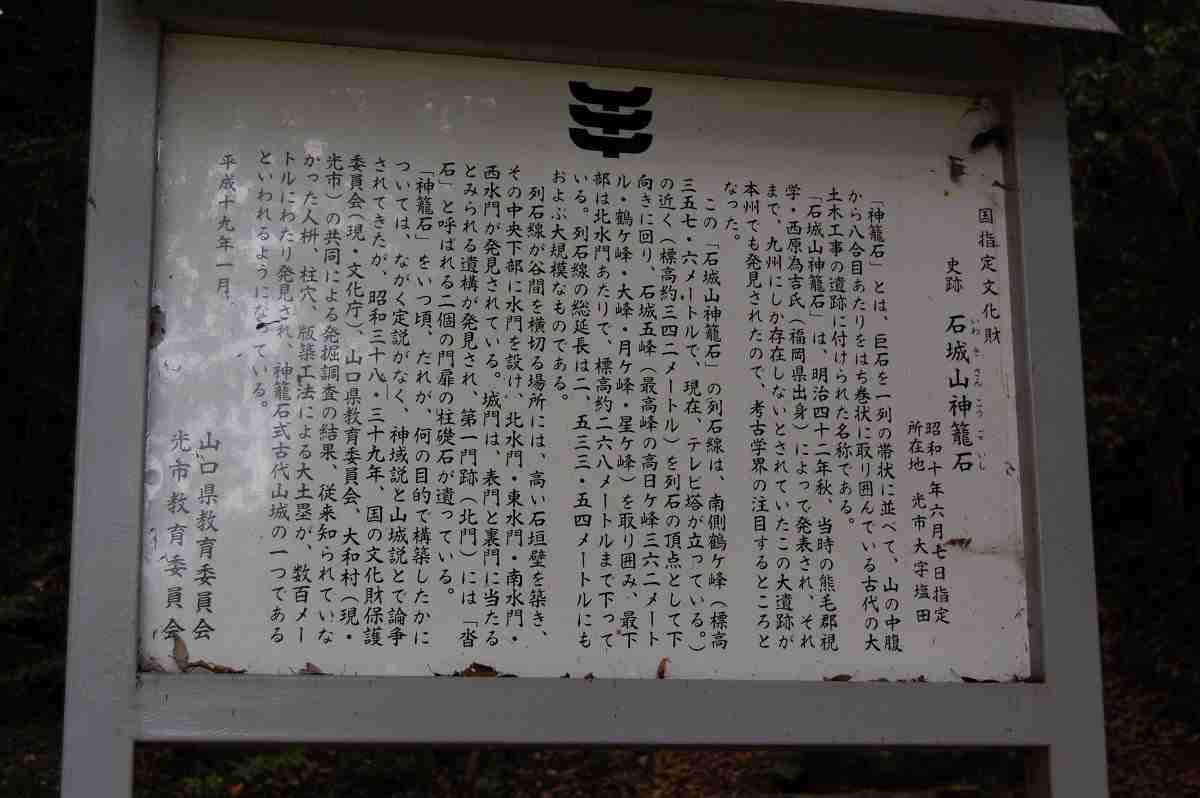 国指定文化財
史跡 石城山神籠石
いわ き さん こう ご いし
昭和十年六月七日指定
所在地 光市大字塩田
「神籠石」とは、巨石を一列の帯状に並べて、山の中腹
から八合目あたりをはち巻状に取り囲んでいる古代の大
土木工事の遺跡に付けられた名称である。
「石城山神籠石」は、明治四十二年秋、当時の熊毛郡視
学・西原為吉氏（福岡県出身）によって発表され、それ
まで、九州にしか存在しないとされていたこの大遺跡が
本州でも発見されたので、考古学界の注目するところと
なった。
この「石城山神籠石」の列石線は、南側鶴ケ峰（標高
三五七・六メートルで、現在、テレビ塔が立っている。）
の近く（標高約三四二メートル）を列石の頂点として下
向きに回り、石城五峰（最高峰の高日ケ峰三六二メート
ル・鶴ケ峰・大峰・月ケ峰・星ケ峰）を取り囲み、最下
部は北水門あたりで、標高約二六八メートルまで下って
いる。列石線の総延長は二、五三三・五四メートルにも
およぶ大規模なものである。
列石線が谷間を横切る場所には、高い石垣壁を築き、
その中央下部に水門を設け、北水門・東水門・南水門・
西水門が発見されている。城門は、表門と裏門に当たる
とみられる遺構が発見され、第一門跡（北門）には「沓
石」と呼ばれる二個の門扉の柱礎石が遺っている。
「神籠石」をいつ頃、だれが、何の目的で構築したかに
ついては、ながく定説がなく、神域説と山城説とで論争
されてきたが、昭和三十八・三十九年、国の文化財保護
委員会（現・文化庁）、山口県教育委員会、大和村（現・
光市）の共同による発掘調査の結果、従来知られていな
かった人枡、柱穴、版築工法による大土塁が、数百メー
トルにわたり発見され、神籠石式古代山城の一つである
といわれるようになっている。
平成十九年一月
山口県教育委員会
光市教育委員会